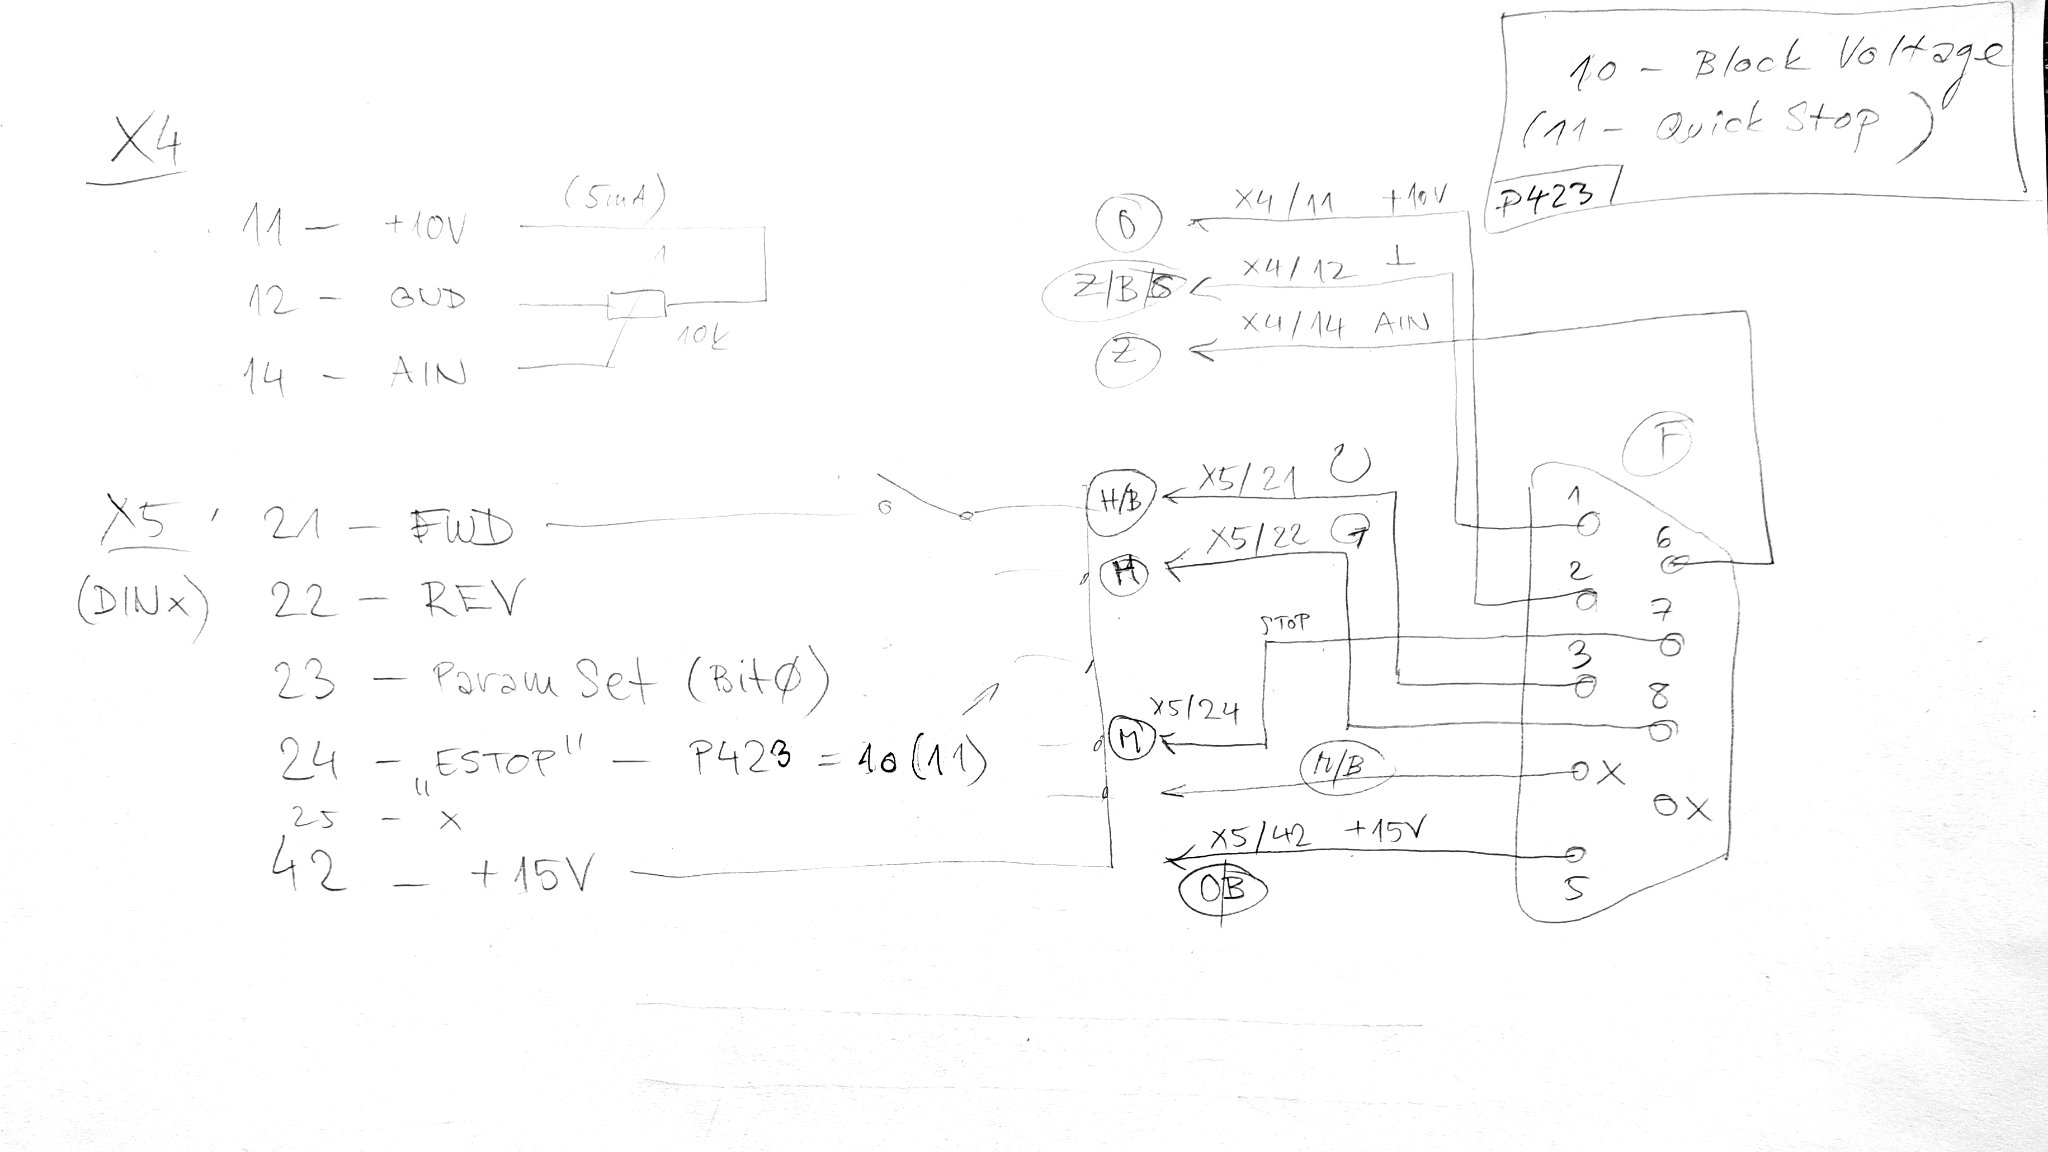 10 - Block Voltage
(11 - Quick Stop)
P423
X4
11 - +10V (5mA)
12 - GND
10k
14 - AIN
X4/11 +10V
Z/B/S X4/12 ⊥
Z X4/14 AIN
F
X5 21 - FWD
H/B X5/21
(DINx) 22 - REV
X5/22
STOP
23 - Param Set (Bit0)
24 - „ESTOP" - P423 = 10 (11)
X5/24
25 - x
M/B
42 - +15V
X5/42 +15V
OB
1
6
2
7
3
8
X
X
5